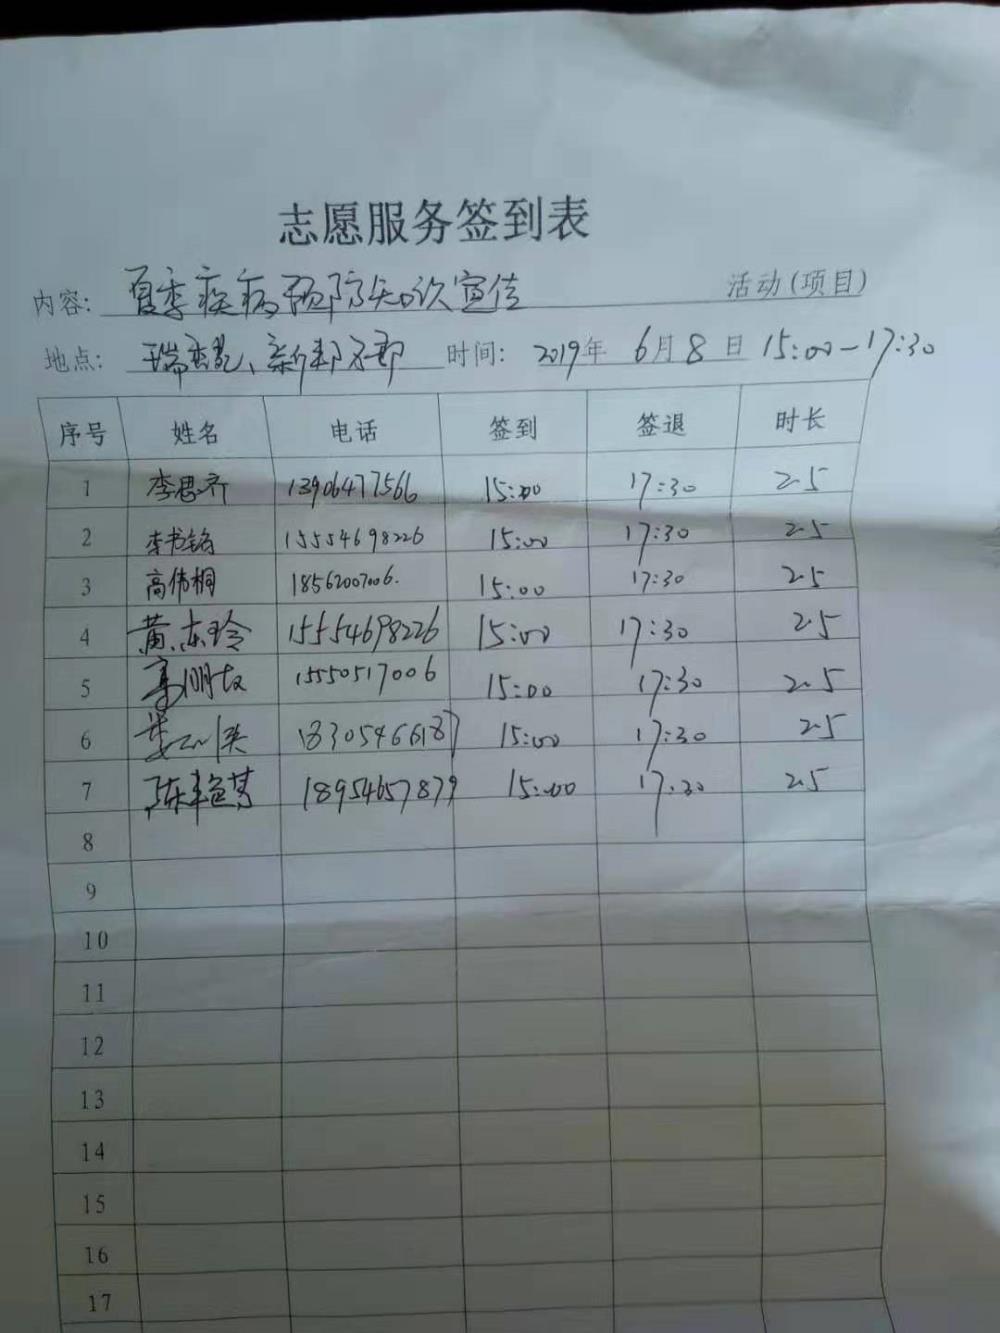 志愿服务签到表
内容: 夏季疾病预防知识宣传 活动(项目)
地点: 时间: 2019年 6月8日 15:00-17:30
序号 姓名 电话 签到 签退 时长
1 李思齐 13906477566 15:00 17:30 2.5
2 李书铭 15554698226 15:00 17:30 2.5
3 高伟桐 18562007006. 15:00 17:30 2.5
4 黄东玲 15554698226 15:00 17:30 2.5
5 15550517006 15:00 17:30 2.5
6 18305466187 15:00 17:30 2.5
7 18954657879 15:00 17:30 2.5
8
9
10
11
12
13
14
15
16
17